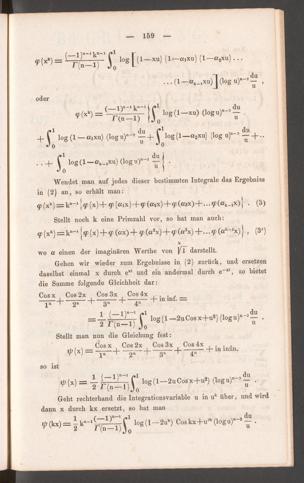 — 159 —
φ(xᵏ) = (−1)ⁿ⁻¹ kⁿ⁻¹ / Γ(n−1) ∫₀¹ log [(1−xu) (1−α₁xu) (1−α₂xu) ...
... (1−αₖ₋₁xu)] (log u)ⁿ⁻² du/u ,
oder
φ(xᵏ) = (−1)ⁿ⁻¹ kⁿ⁻¹ / Γ(n−1) { ∫₀¹ log (1−xu) (log u)ⁿ⁻² du/u
+ ∫₀¹ log (1−α₁xu) (log u)ⁿ⁻² du/u + ∫₀¹ log (1−α₂xu) (log u)ⁿ⁻² du/u + ..
.. + ∫₀¹ log (1−αₖ₋₁xu) (log u)ⁿ⁻² du/u } .
Wendet man auf jedes dieser bestimmten Integrale das Ergebniss
in (2) an, so erhält man:
φ(xᵏ) = kⁿ⁻¹ {φ(x) + φ(α₁x) + φ(α₂x) + φ(α₃x) + ... φ(αₖ₋₁x)} . (3)
Stellt noch k eine Primzahl vor, so hat man auch:
φ(xᵏ) = kⁿ⁻¹ {φ(x) + φ(αx) + φ(α²x) + φ(α³x) + ... φ(αᵏ⁻¹x)} , (3′)
wo α einen der imaginären Werthe von ᵏ√1 darstellt.
Gehen wir wieder zum Ergebnisse in (2) zurück, und ersetzen
daselbst einmal x durch eˣⁱ und ein andermal durch e⁻ˣⁱ, so bietet
die Summe folgende Gleichheit dar:
Cos x / 1ⁿ + Cos 2x / 2ⁿ + Cos 3x / 3ⁿ + Cos 4x / 4ⁿ + in inf. =
= 1/2 (−1)ⁿ⁻¹ / Γ(n−1) ∫₀¹ log (1−2u Cos x + u²) (log u)ⁿ⁻² du/u .
Stellt man nun die Gleichung fest:
ψ(x) = Cos x / 1ⁿ + Cos 2x / 2ⁿ + Cos 3x / 3ⁿ + Cos 4x / 4ⁿ + in infin.
so ist
ψ(x) = 1/2 (−1)ⁿ⁻¹ / Γ(n−1) ∫₀¹ log (1−2u Cos x + u²) (log u)ⁿ⁻² du/u .
Geht rechterhand die Integrationsvariable u in uᵏ über, und wird
dann x durch kx ersetzt, so hat man
ψ(kx) = 1/2 kⁿ⁻¹ (−1)ⁿ⁻¹ / Γ(n−1) ∫₀¹ log (1−2uᵏ Cos kx + u²ᵏ) (log u)ⁿ⁻² du/u .